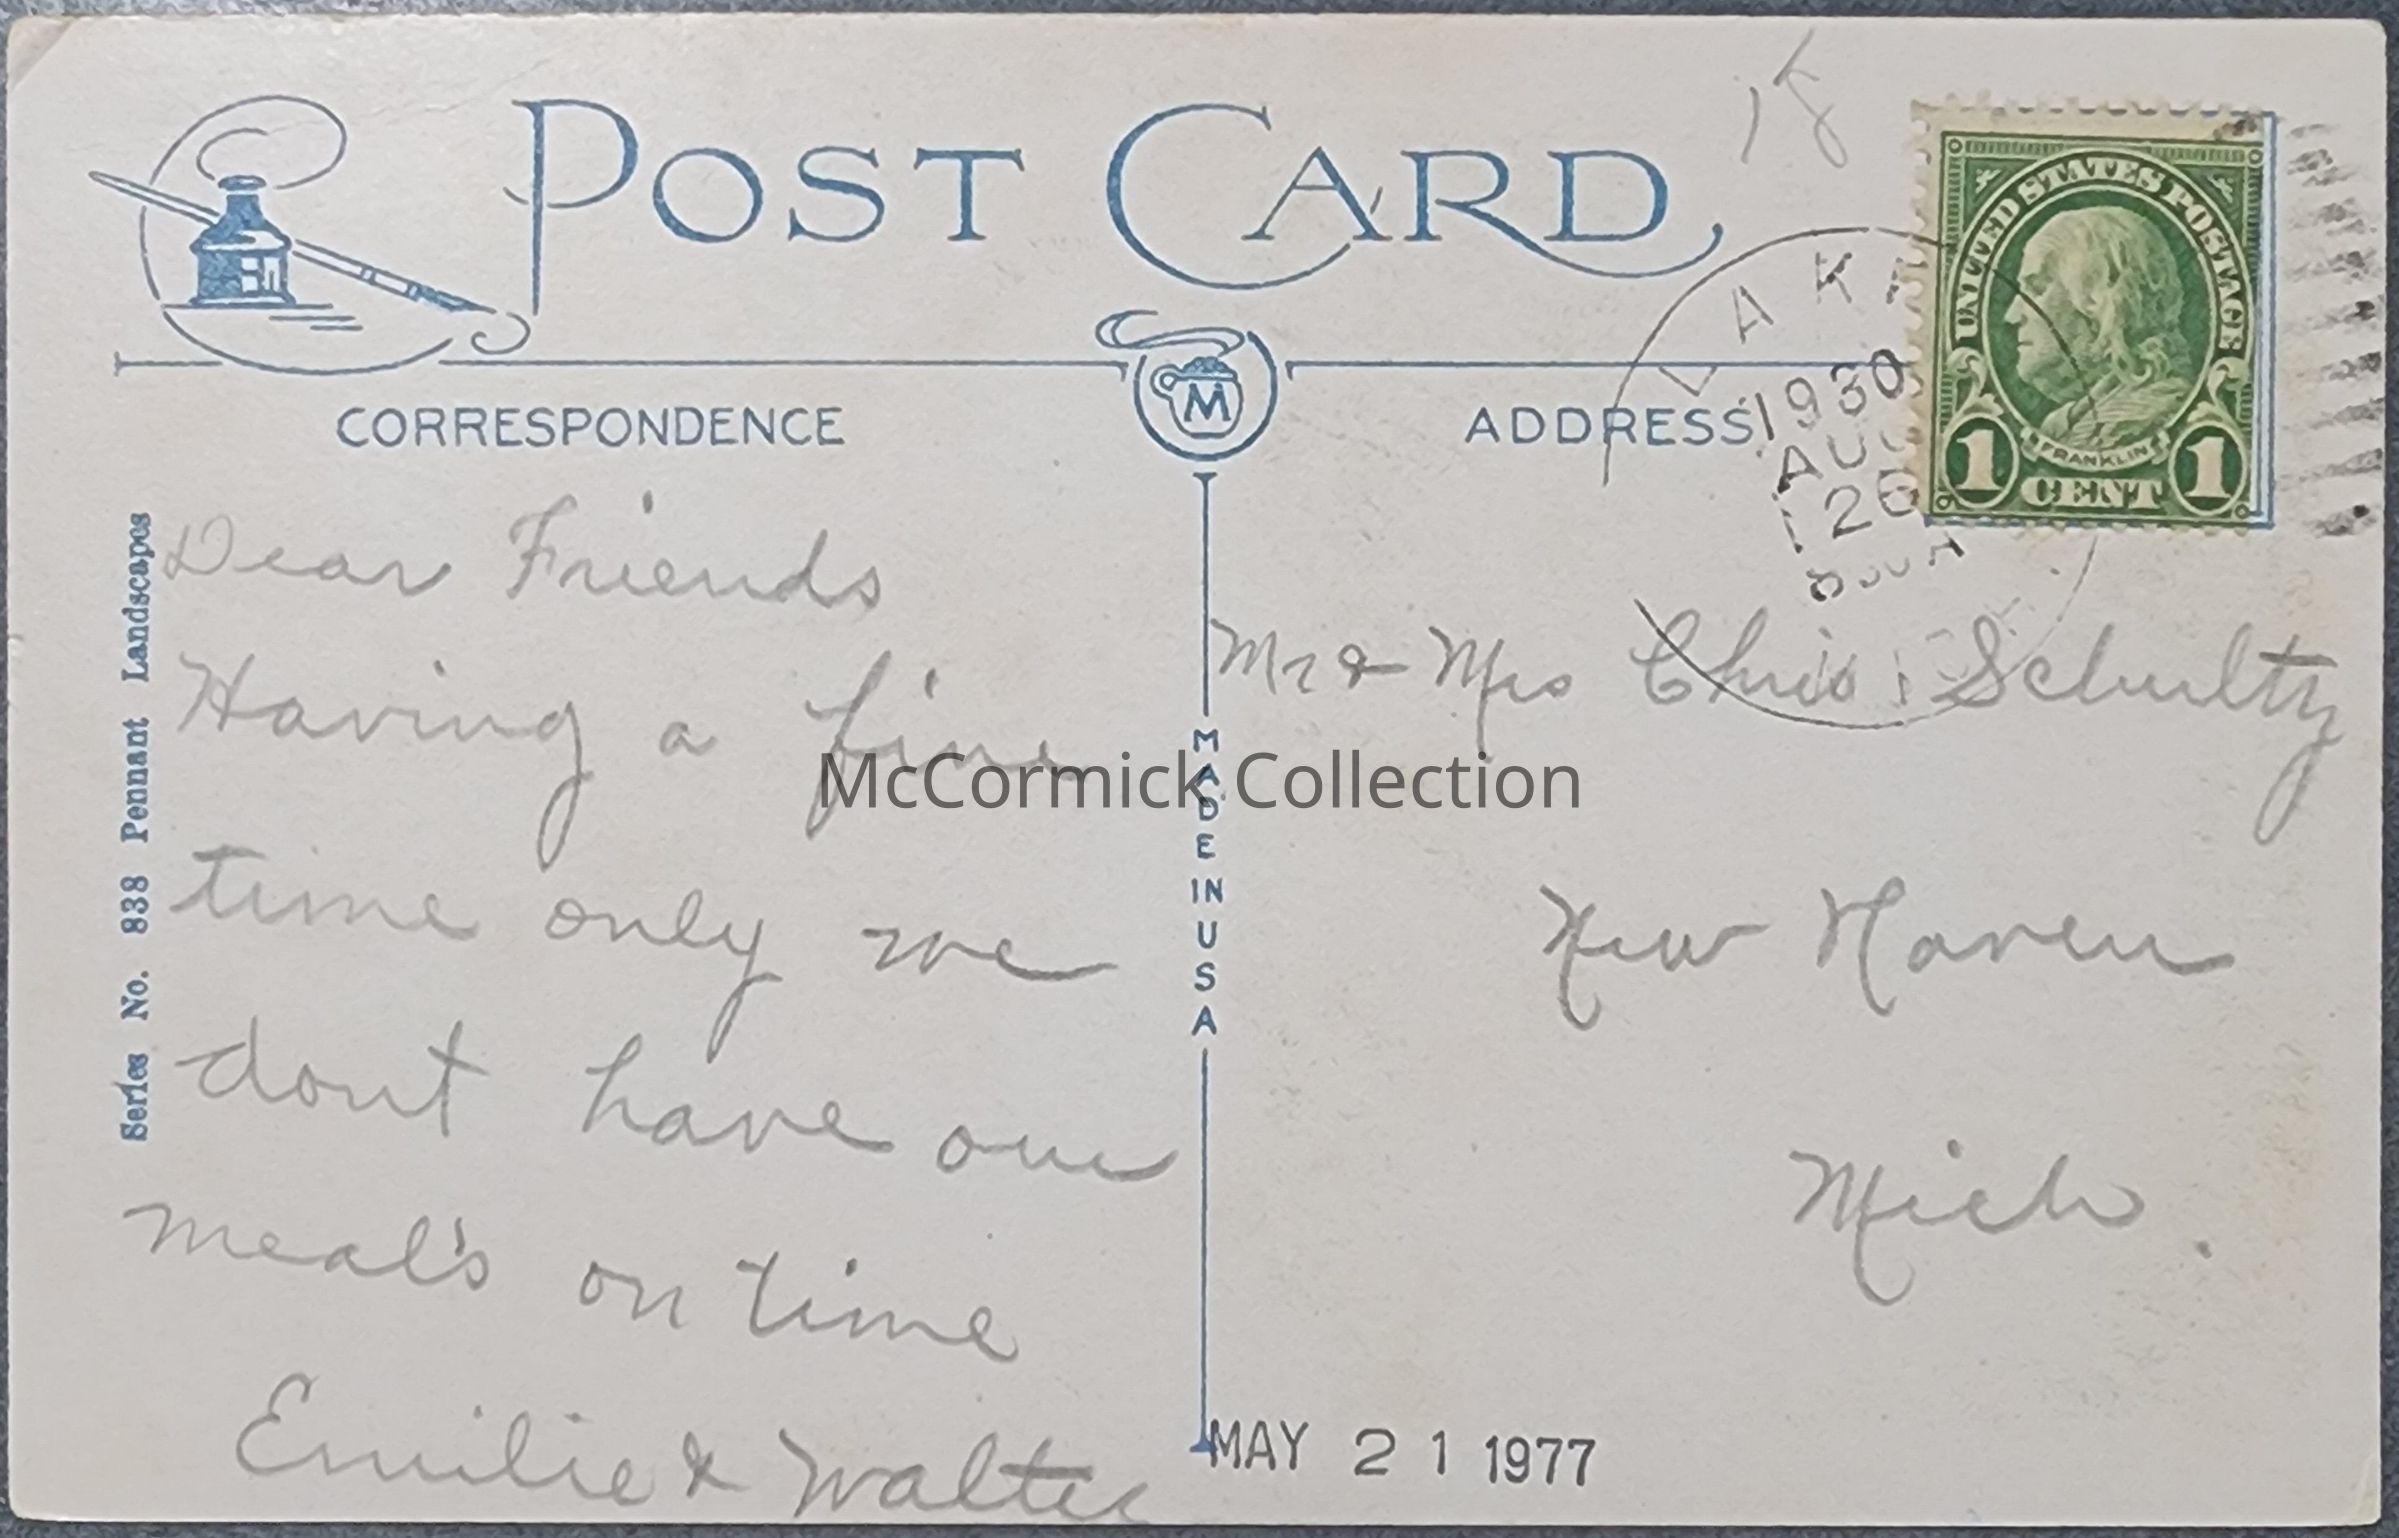 POST CARD
18
LAKE
1930
AUG
26
UNITED STATES POSTAGE
FRANKLIN
1 CENT 1
M
CORRESPONDENCE
ADDRESS
Series No. 838 Pennant Landscapes
Dear Friends
Having a fine
time only we
dont have our
meal's on time
Emilie & Walter
MADE IN USA
Mr & Mrs Chris Schultz
New Haven
Mich.
McCormick Collection
MAY 21 1977